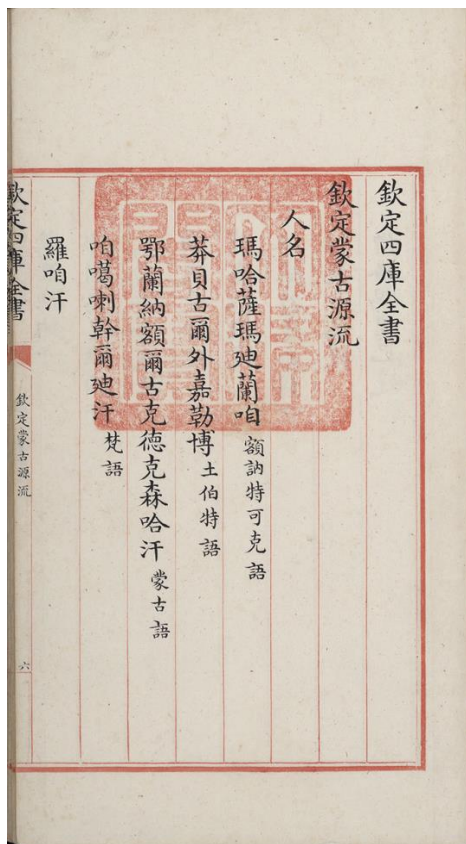 欽定四庫全書
欽定蒙古源流
人名
瑪哈薩瑪廸蘭咱額訥特可克語
莽貝古爾外嘉勒博土伯特語
鄂蘭納額爾古克德克森哈汗蒙古語
咱噶喇斡爾廸汗梵語
羅咱汗
欽定四庫全書
欽定蒙古源流
六